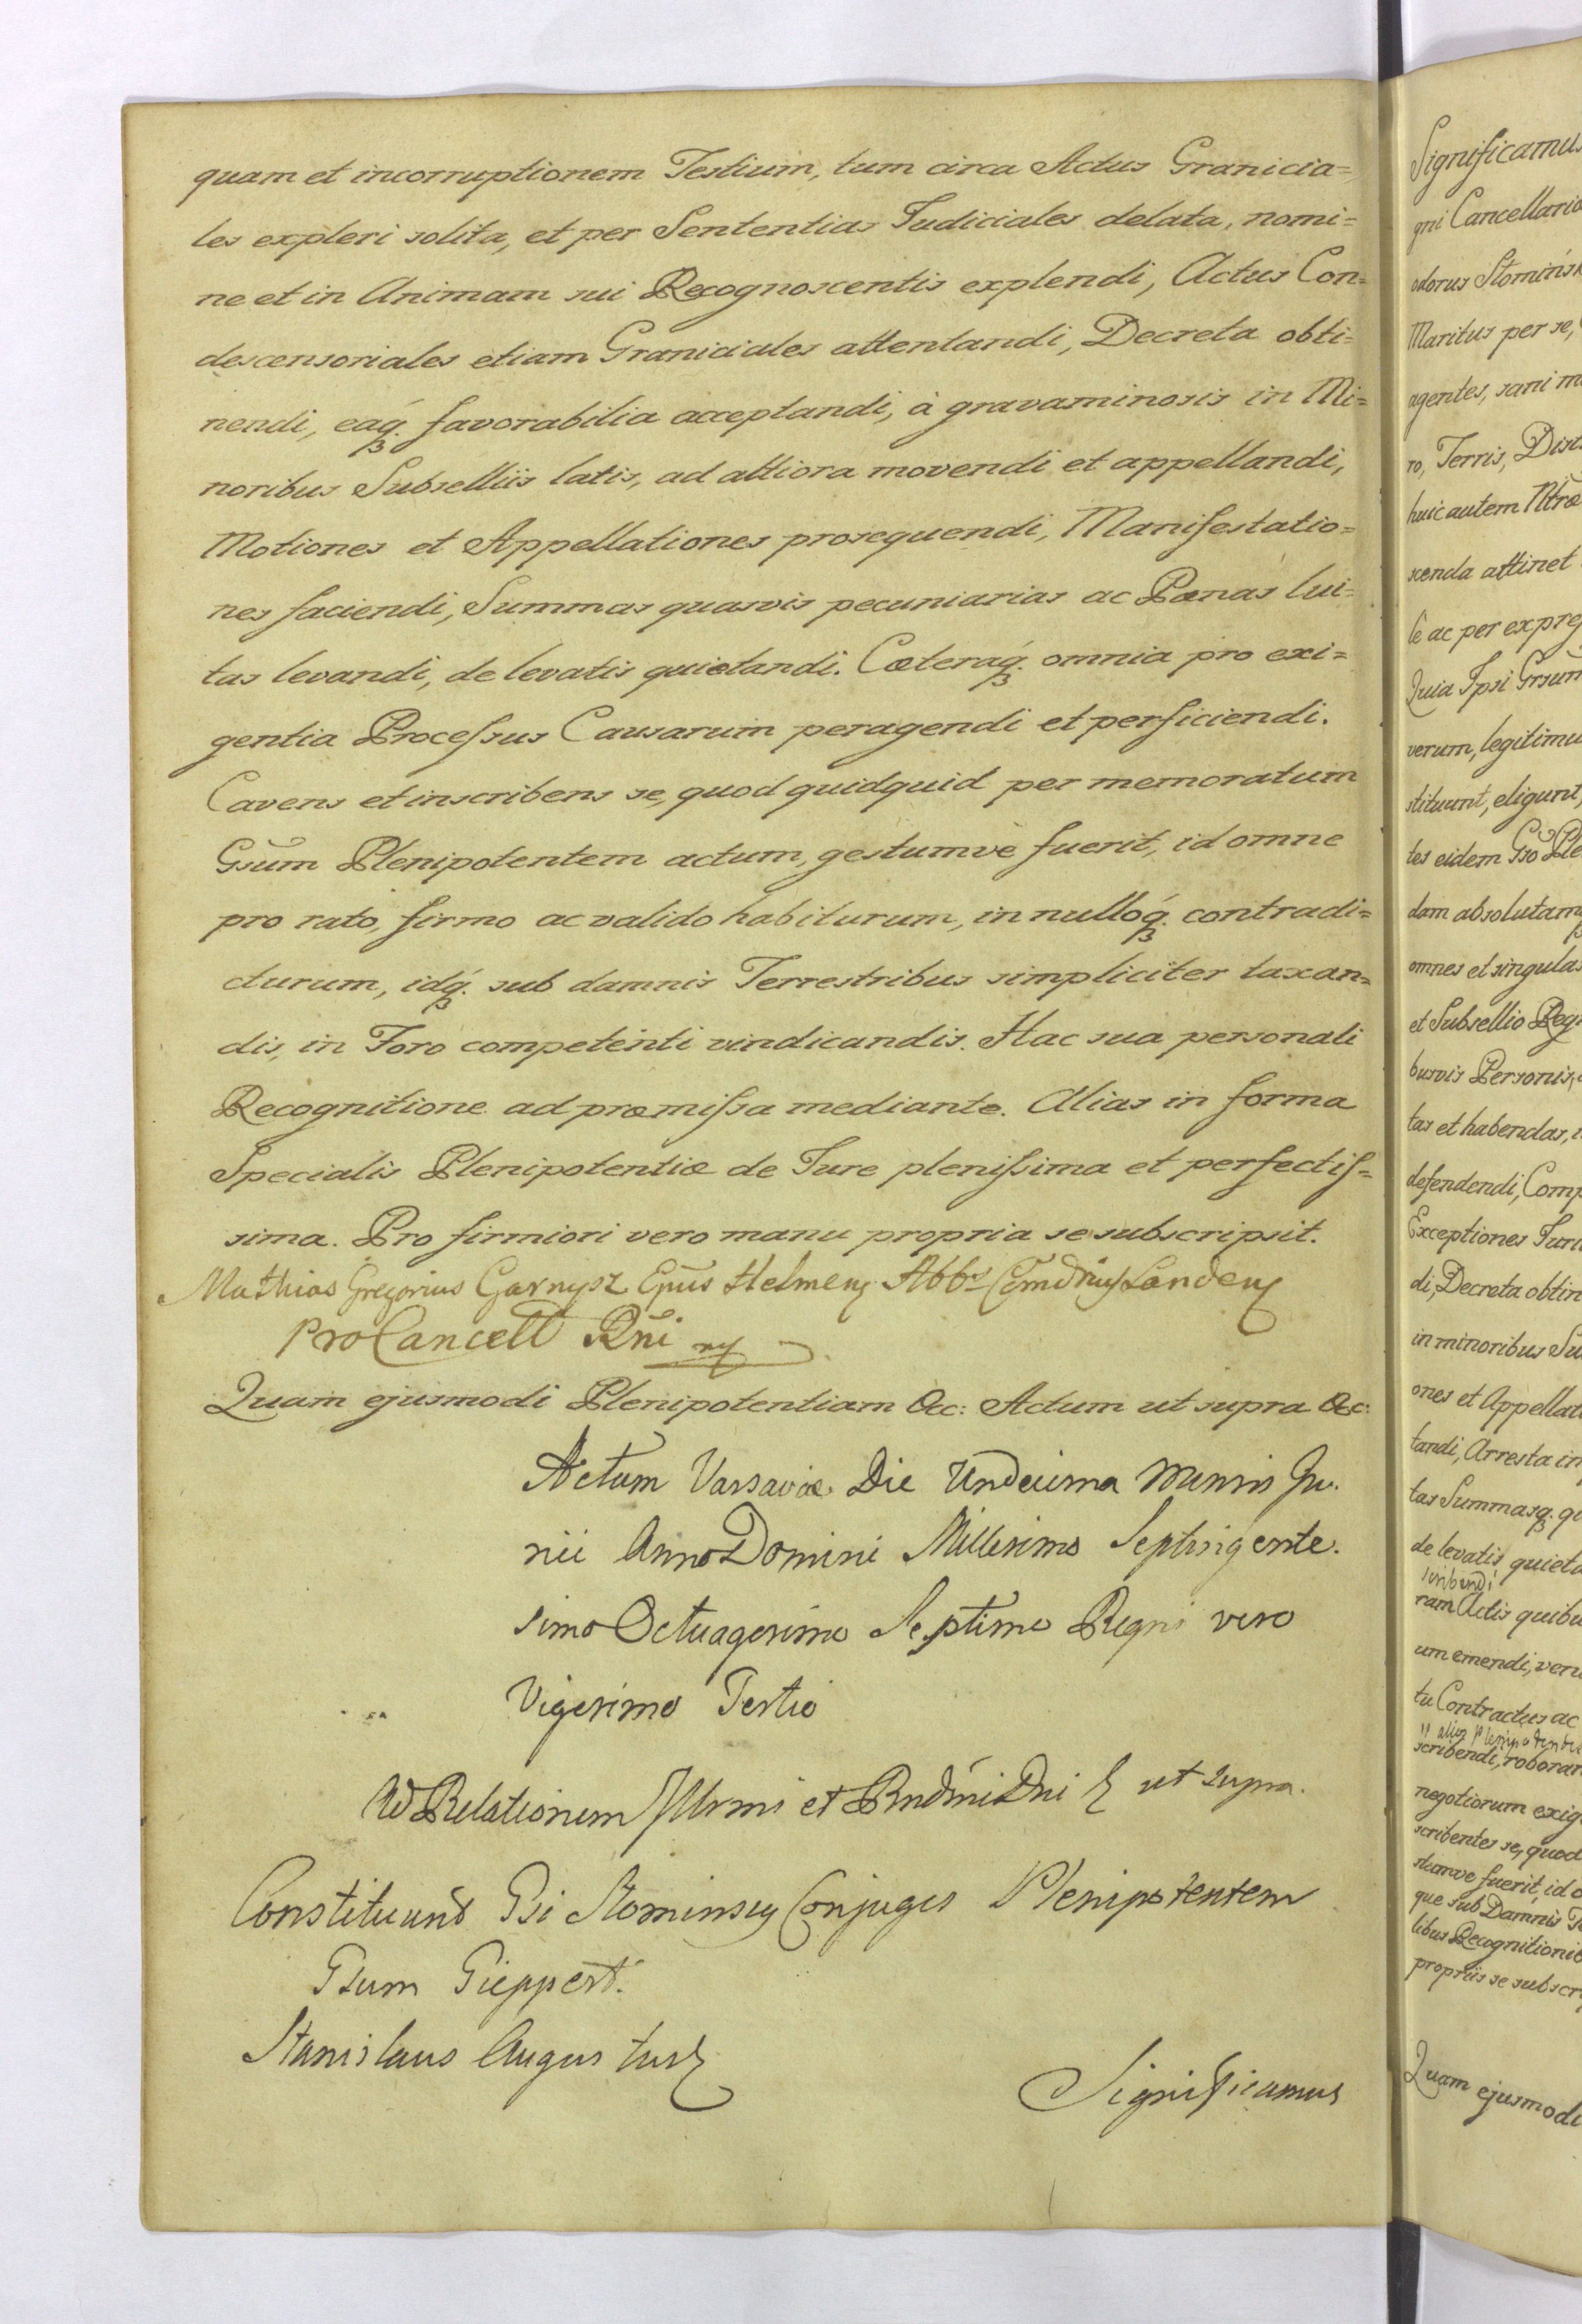 quam et incorruptionem Testium, tum circa Actus Granicia=
les expleri solita, et per Sententias Judiciales delata, nomi=
ne et in Animam sui Recognoscentis explendi, Actus Con=
descensoriales etiam Graniciales attentandi, Decreta obti=
nendi, eaq́ꝫ favorabilia acceptandi, à gravaminosis in Mi=
noribus Subselliis latis, ad altiora movendi et appellandi,
Motiones et Appellationes prosequendi, Manifestatio=
nes faciendi, Summas quasvis pecuniarias ac Pœnas lui=
tas levandi, de levatis quietandi. Cœteraq́ꝫ omnia pro exi=
gentia Proceſsus Causarum peragendi et perficiendi.
Cavens et inscribens se, quod quidquid per memoratum
Gsūm Plenipotentem actum, gestumvè fuerit, id omne
pro rato, firmo ac valido habiturum, in nulloq́ꝫ contradi=
cturum, idq́ꝫ sub damnis Terrestribus simpliciter taxan=
dis, in Foro competenti vindicandis. Hac sua personali
Recognitione ad prœmiſsa mediante. Alias in forma
Specialis Plenipotentiœ de Jure pleniſsima et perfectiſ=
sima. Pro firmiori vero manu propria se subscripsit.
Mathias Gregorius Garnysz Epūs Helmen Abbs Cōmdrius Landen
ProCancell Rñi
Quam ejusmodi Plenipotentiam &c: Actum ut supra &c:
Actum Varsaviœ Die Undecima Mensis Ju.
nii Anno Domini Millesimo Septingente.
simo Octuagesimo Septimo Regni vero
Vigesimo Tertio
Relationem Illrmi et Rndmi Dni ut supra.
Constituunt Gsi Stominscy Conjuges Plenipotentem
Gsum Gieppert.
Stanislaus Augustus
Significamus
Significamus
gni Cancellario
odorus Stomińsk
Maritus per se,
agentes, sani m
ro, Terris, Dist
huic autem Ntrœ
scenda attinet
le ac per expreſ
Quia Ipsi Grsum
verum, legitimu
stituunt, eligunt,
tes eidem Gso Ple
dam absolutamqꝫ
omnes et singulas
et Subsellio Reg
busvis Personis,
tas et habendas,
defendendi, Comp
Exceptiones Juri
di, Decreta obtin
in minoribus Su
ones et Appellat
tandi, Arresta in
tas Summasqꝫ q
de levatis quieta
scribendi
ram Actis quibu
um emendi, ven
tu Contractus ac
alios Plenipotentes
scribendi, roboran
negotiorum exig
scribentes se, quod
stumve fuerit, id o
que sub Damnis Te
libus Recognitionib
propriis se subscr
Quam ejusmodi